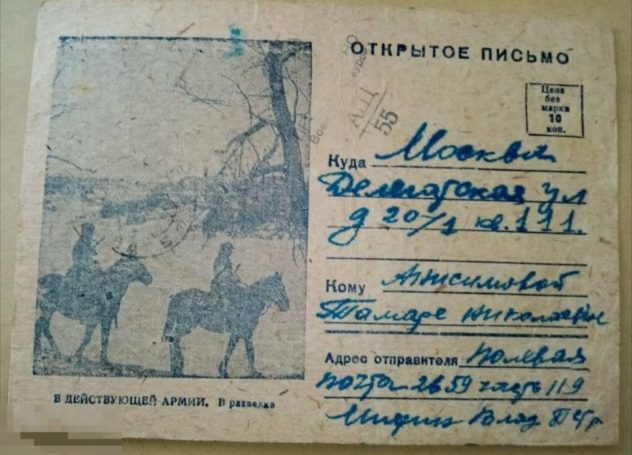 ОТКРЫТОЕ ПИСЬМО
Цена
без
марки
10
коп.
АД
55
Куда Москва
Делегатская ул
д 20/1 кв. 111.
Кому Анисимовой
Тамаре Николаевне
Адрес отправителя Полевая
почта 2659 часть 119
Влад Петр
В ДЕЙСТВУЮЩЕЙ АРМИИ. В разведке